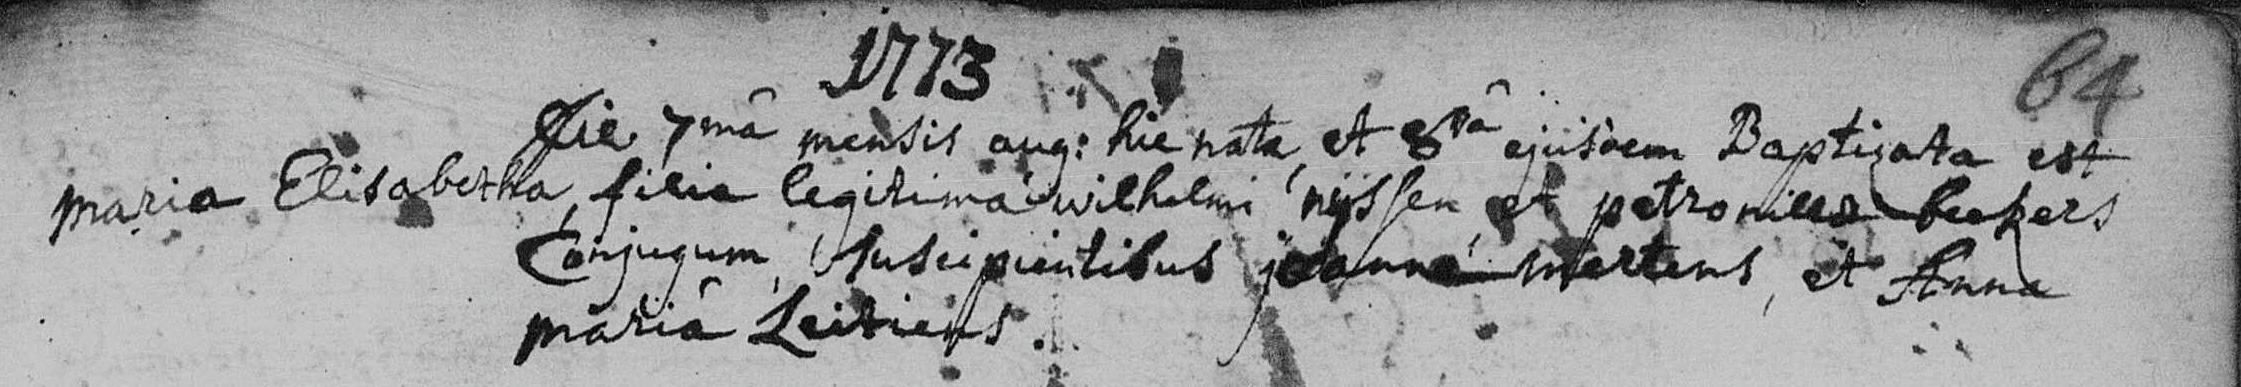 1773
64
Die 7mâ mensis aug: hie nata, et 8vâ ejusdem Baptizata est
maria Elisabetha, filia legitima wilhelmi nijssen et petronillæ beckers
Conjugum, suscipientibus joanne mertens, et Anna
mariâ Leitiens.